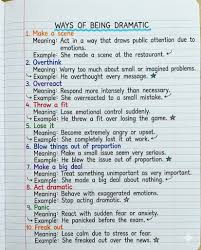 WAYS OF BEING DRAMATIC
1. Make a scene
Meaning: Act in a way that draws public attention due to
emotions.
Example: She made a scene at the restaurant.
2. Overthink
Meaning: Worry too much about small or imagined problems.
Example: He overthought every message.
3. Overreact
Meaning: Respond more intensely than necessary.
Example: She overreacted to a small mistake.
4. Throw a fit
Meaning: Lose emotional control suddenly.
Example: He threw a fit over losing the game.
5. Lose it
Meaning: Become extremely angry or upset.
Example: She completely lost it at work.
6. Blow things out of proportion
Meaning: Make a small issue seem very serious.
Example: He blew the issue out of proportion.
7. Make a big deal
Meaning: Treat something unimportant as very important.
Example: She made a big deal about nothing.
8. Act dramatic
Meaning: Behave with exaggerated emotions.
Example: Stop acting dramatic.
9. Panic
Meaning: React with sudden fear or anxiety.
Example: He panicked before the exam.
10. Freak out
Meaning: Lose calm due to stress or fear.
Example: She freaked out over the news.